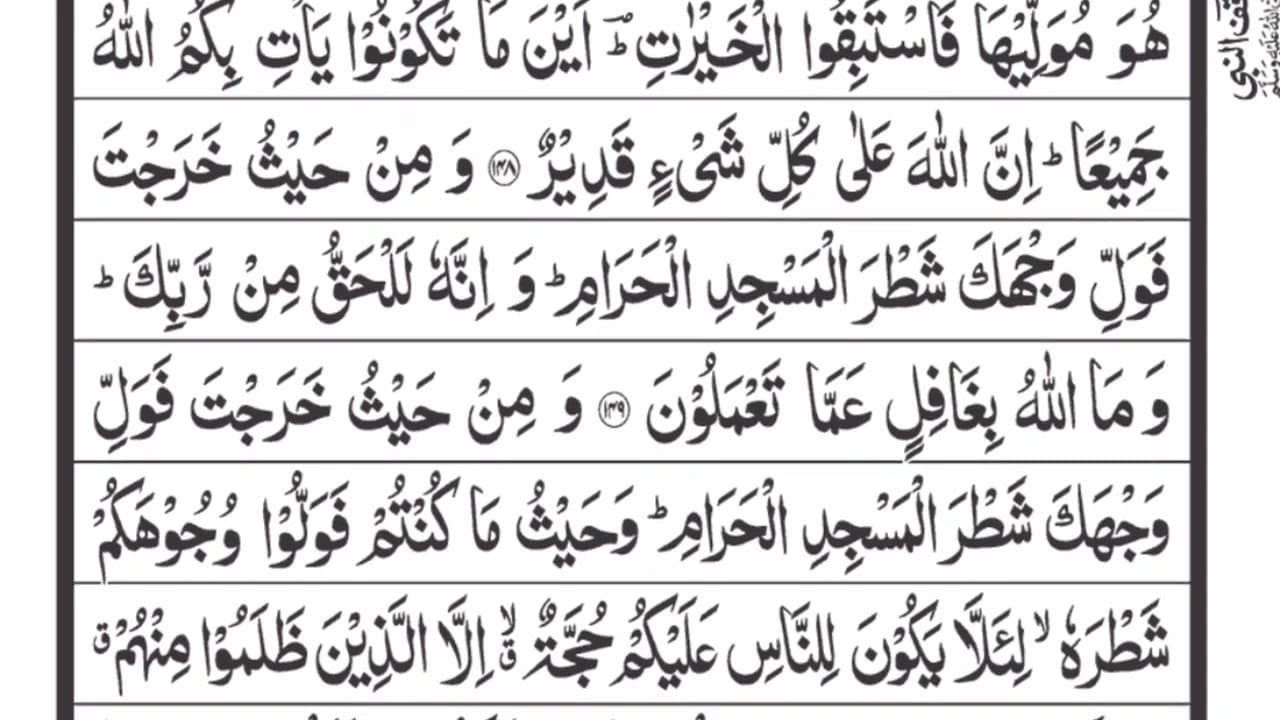 هُوَ مُوَلِّیْهَا فَاسْتَبِقُوا الْخَیْرٰتِ ؕؔ اَیْنَ مَا تَكُوْنُوْا یَاْتِ بِكُمُ اللّٰهُ
جَمِیْعًا ؕ اِنَّ اللّٰهَ عَلٰی كُلِّ شَیْءٍ قَدِیْرٌ ﴿۱۴۸﴾ وَ مِنْ حَیْثُ خَرَجْتَ
فَوَلِّ وَجْهَكَ شَطْرَ الْمَسْجِدِ الْحَرَامِ ؕ وَ اِنَّهٗ لَلْحَقُّ مِنْ رَّبِّكَ ؕ
وَ مَا اللّٰهُ بِغَافِلٍ عَمَّا تَعْمَلُوْنَ ﴿۱۴۹﴾ وَ مِنْ حَیْثُ خَرَجْتَ فَوَلِّ
وَجْهَكَ شَطْرَ الْمَسْجِدِ الْحَرَامِ ؕ وَحَیْثُ مَا كُنْتُمْ فَوَلُّوْا وُجُوْهَكُمْ
شَطْرَهٗ ۙ لِئَلَّا یَكُوْنَ لِلنَّاسِ عَلَیْكُمْ حُجَّةٌ ۙۗ اِلَّا الَّذِیْنَ ظَلَمُوْا مِنْهُمْ ۗ
النبی